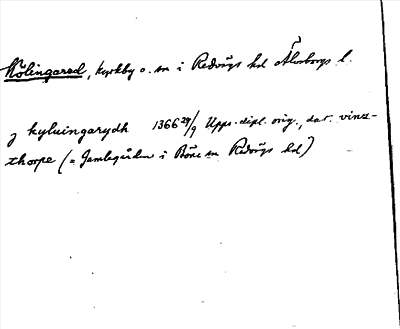 Kölingared, kyrkby o. sn i Redvägs hd Älvsborgs l.
j kyluingarydh 1366 29/9 Upps. dipl. orig., dat. vinz-
thorpe (= Gamlegården i Böne sn Redvägs hd)